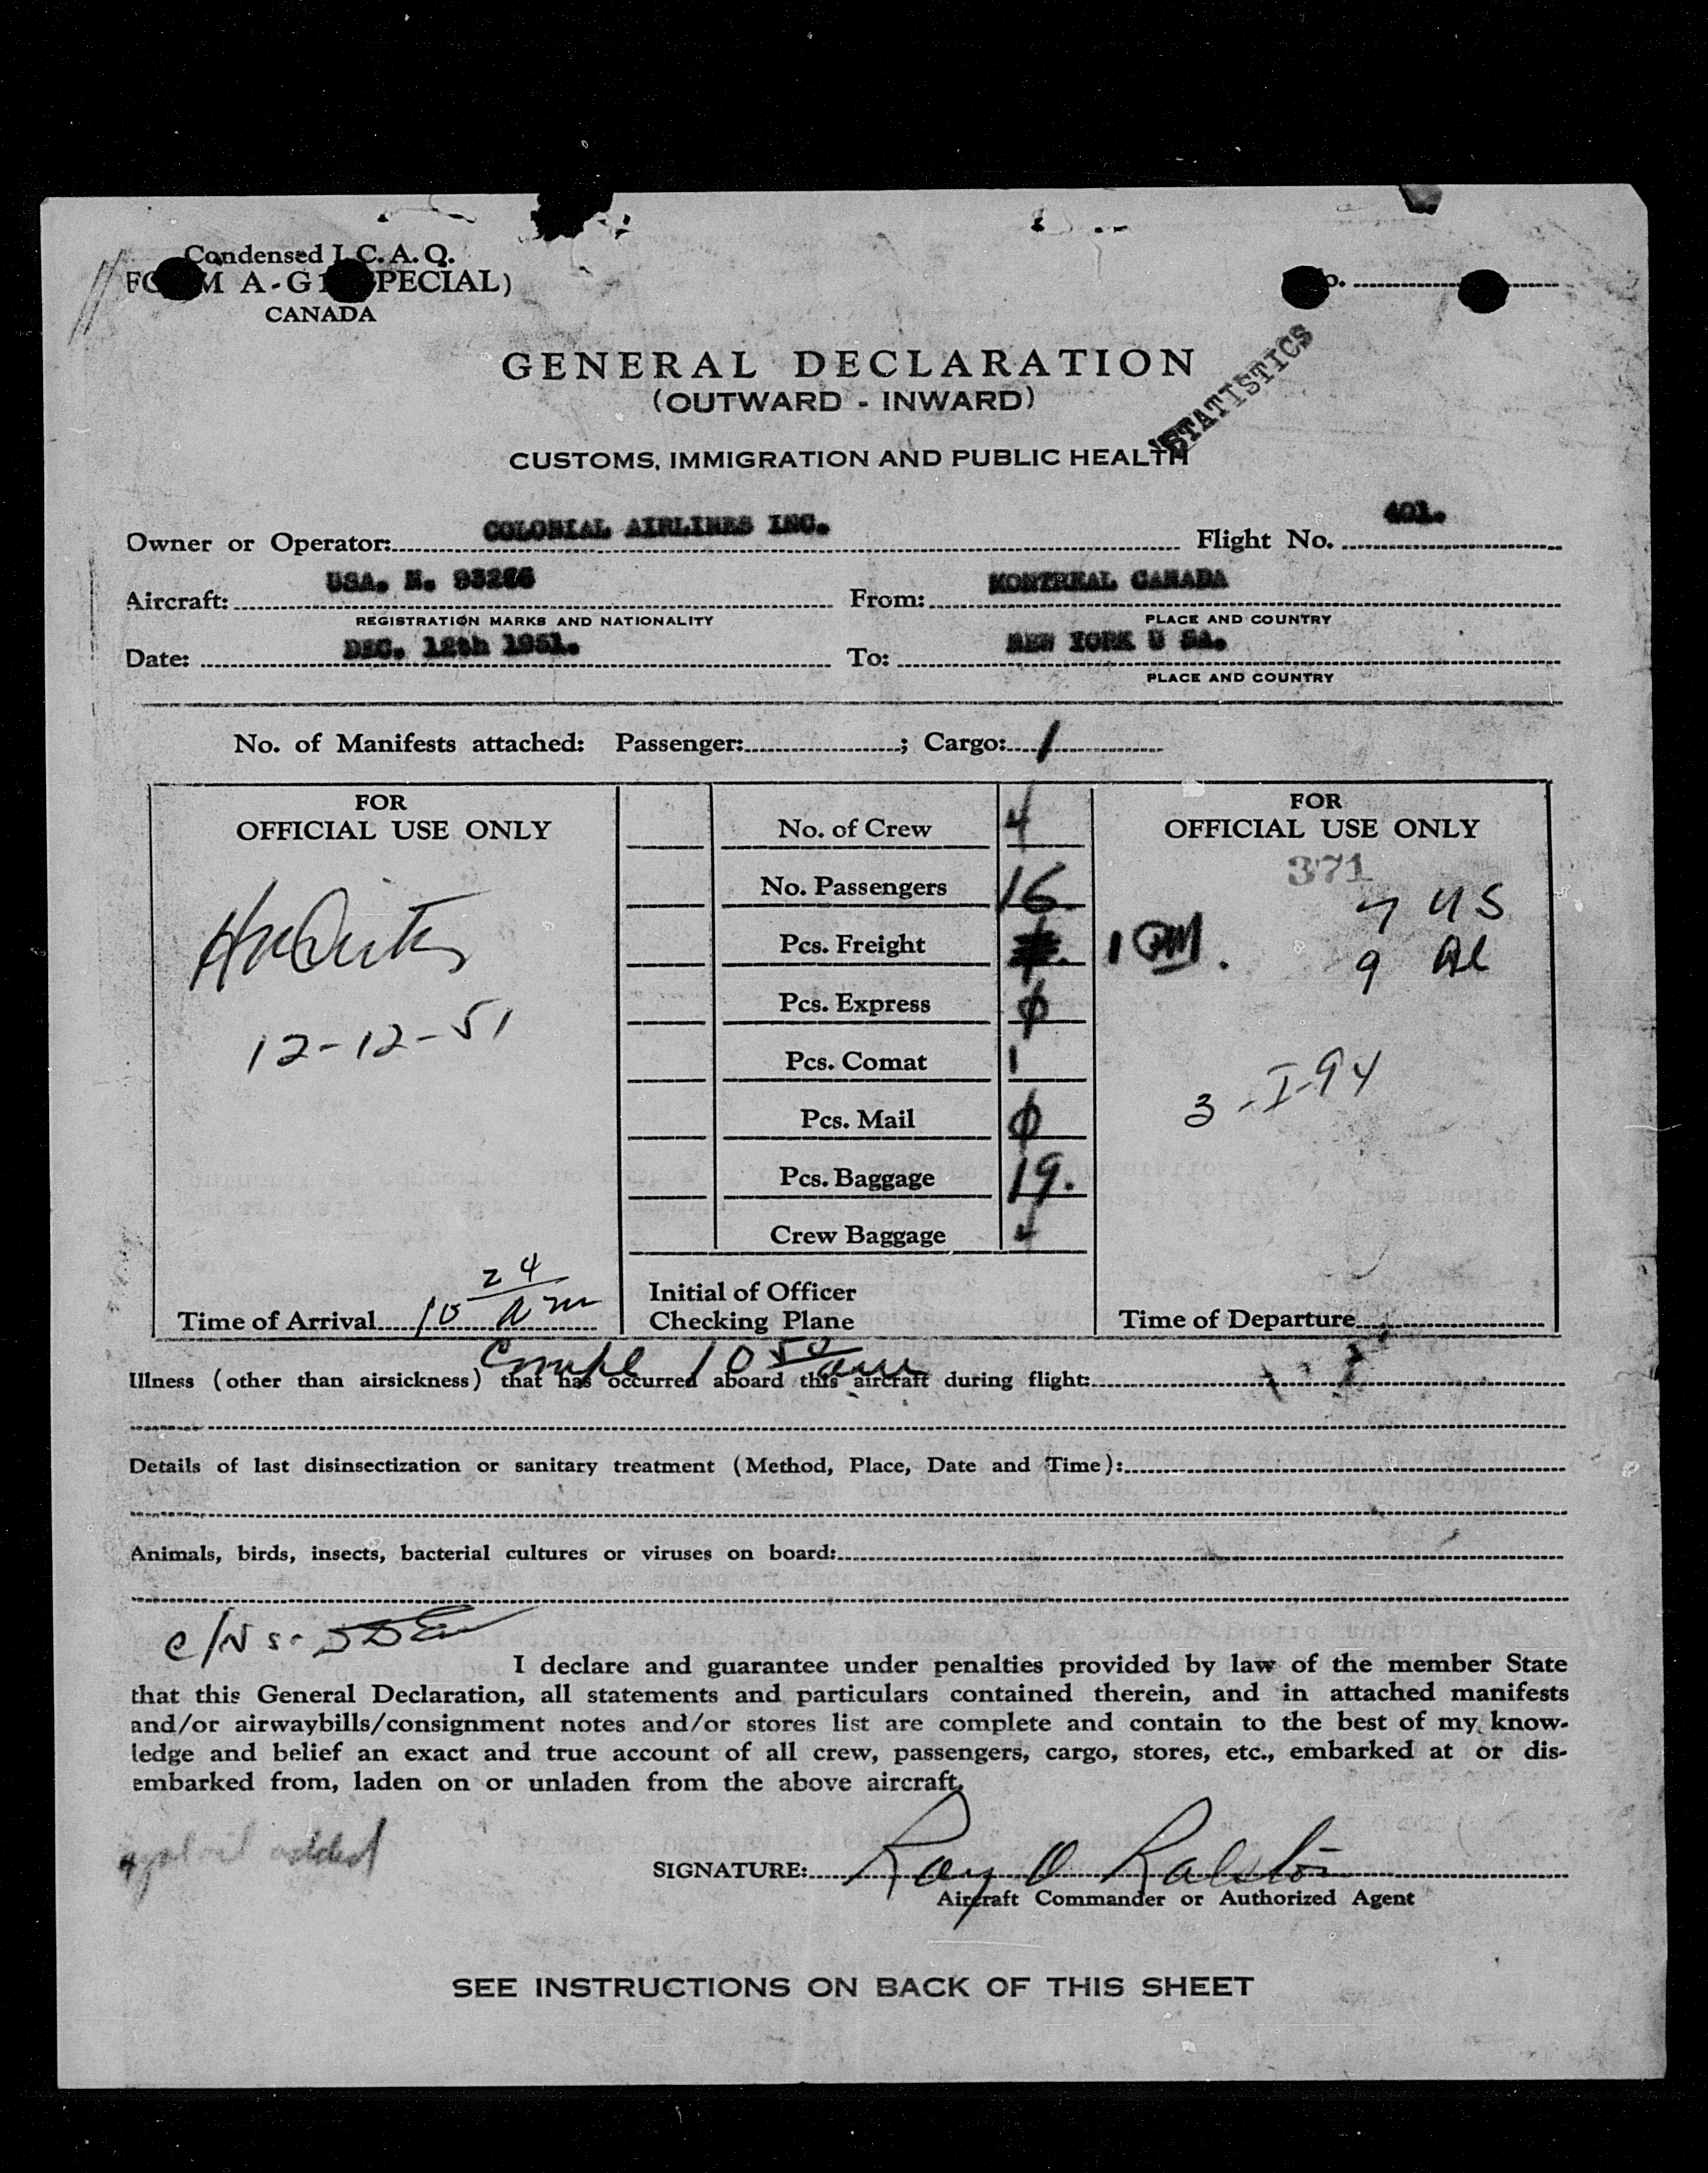 Condensed I. C. A. O.
FORM A-G1 (SPECIAL)
CANADA
No.
GENERAL DECLARATION
(OUTWARD - INWARD)
STATISTICS
CUSTOMS, IMMIGRATION AND PUBLIC HEALTH
Owner or Operator: COLONIAL AIRLINES INC. Flight No. 401.
Aircraft: USA. N. 93266 From: MONTREAL CANADA
REGISTRATION MARKS AND NATIONALITY PLACE AND COUNTRY
Date: DEC. 12th 1951. To: NEW YORK U SA.
PLACE AND COUNTRY
No. of Manifests attached: Passenger: ; Cargo: 1
FOR
OFFICIAL USE ONLY
12-12-51
Time of Arrival 10 24 Am
No. of Crew 4
No. Passengers 16
Pcs. Freight
Pcs. Express ϕ
Pcs. Comat 1
Pcs. Mail ϕ
Pcs. Baggage 19.
Crew Baggage 4
Initial of Officer
Checking Plane
FOR
OFFICIAL USE ONLY
371
7 US
1 PM. 9 Al
3 - I-94
Time of Departure
Compl 10 50 am
Illness (other than airsickness) that has occurred aboard this aircraft during flight:
Details of last disinsectization or sanitary treatment (Method, Place, Date and Time):
Animals, birds, insects, bacterial cultures or viruses on board:
I declare and guarantee under penalties provided by law of the member State
that this General Declaration, all statements and particulars contained therein, and in attached manifests
and/or airwaybills/consignment notes and/or stores list are complete and contain to the best of my know-
ledge and belief an exact and true account of all crew, passengers, cargo, stores, etc., embarked at or dis-
embarked from, laden on or unladen from the above aircraft.
added
SIGNATURE: Ray O Ralston
Aircraft Commander or Authorized Agent
SEE INSTRUCTIONS ON BACK OF THIS SHEET